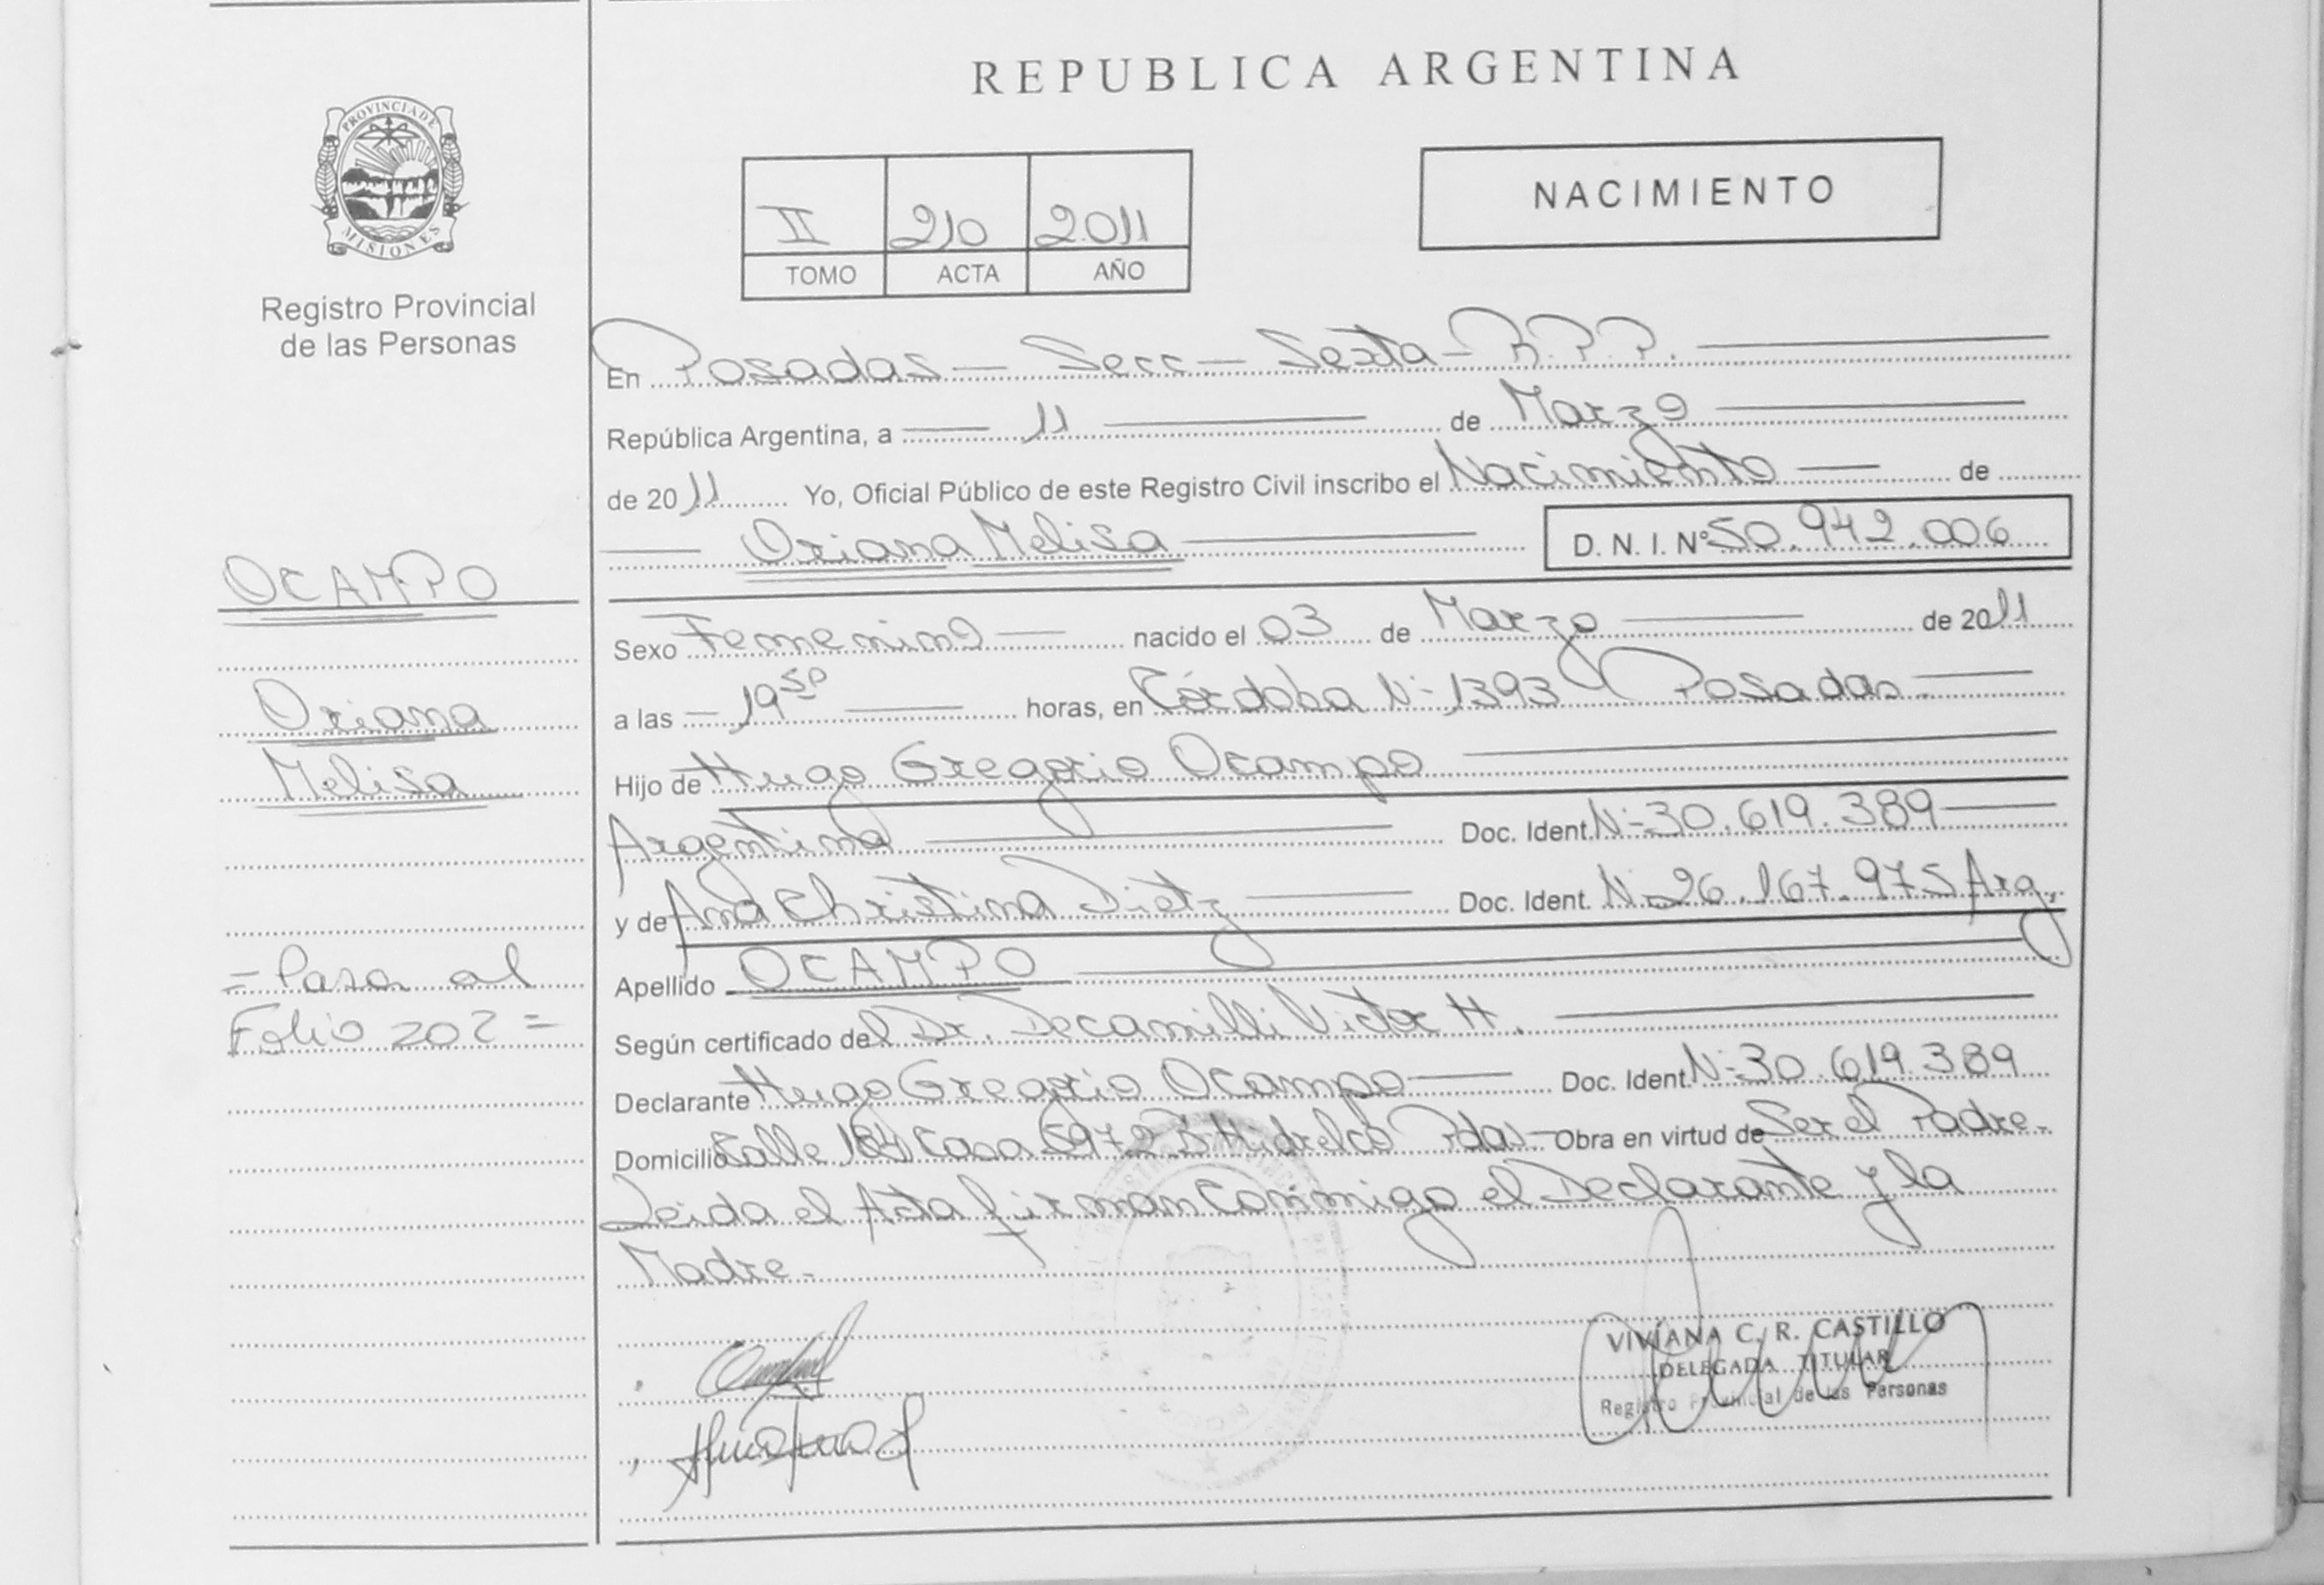 REPUBLICA ARGENTINA
PROVINCIA DE
MISIONES
Registro Provincial
de las Personas
NACIMIENTO
II 210 2011
TOMO ACTA AÑO
En Posadas - Secc - Sexta - R.P.P.
República Argentina, a 11 de Marzo
de 2011 Yo, Oficial Público de este Registro Civil inscribo el Nacimiento de
Oriana Melisa D. N. I. Nº 50.942.006
OCAMPO
Oriana
Melisa
= Pasa al
Folio 202 =
Sexo Femenino nacido el 03 de Marzo de 2011
a las 19 50 horas, en Córdoba Nº 1393 Posadas
Hijo de Hugo Gregorio Ocampo
Argentina Doc. Ident. Nº 30.619.389
y de Ana Christina Dietz Doc. Ident. Nº 26.167.975 Arg.
Apellido OCAMPO
Según certificado del Dr. Decamilli Victor H.
Declarante Hugo Gregorio Ocampo Doc. Ident. Nº 30.619.389
Domicilio Calle 184 Casa 5972 Bº Hidrelco Pdas - Obra en virtud de Ser el Padre.
Leida el Acta firman Conmigo el Declarante y la
Madre.
VIVIANA C. R. CASTILLO
DELEGADA TITULAR
Registro Provincial de las Personas